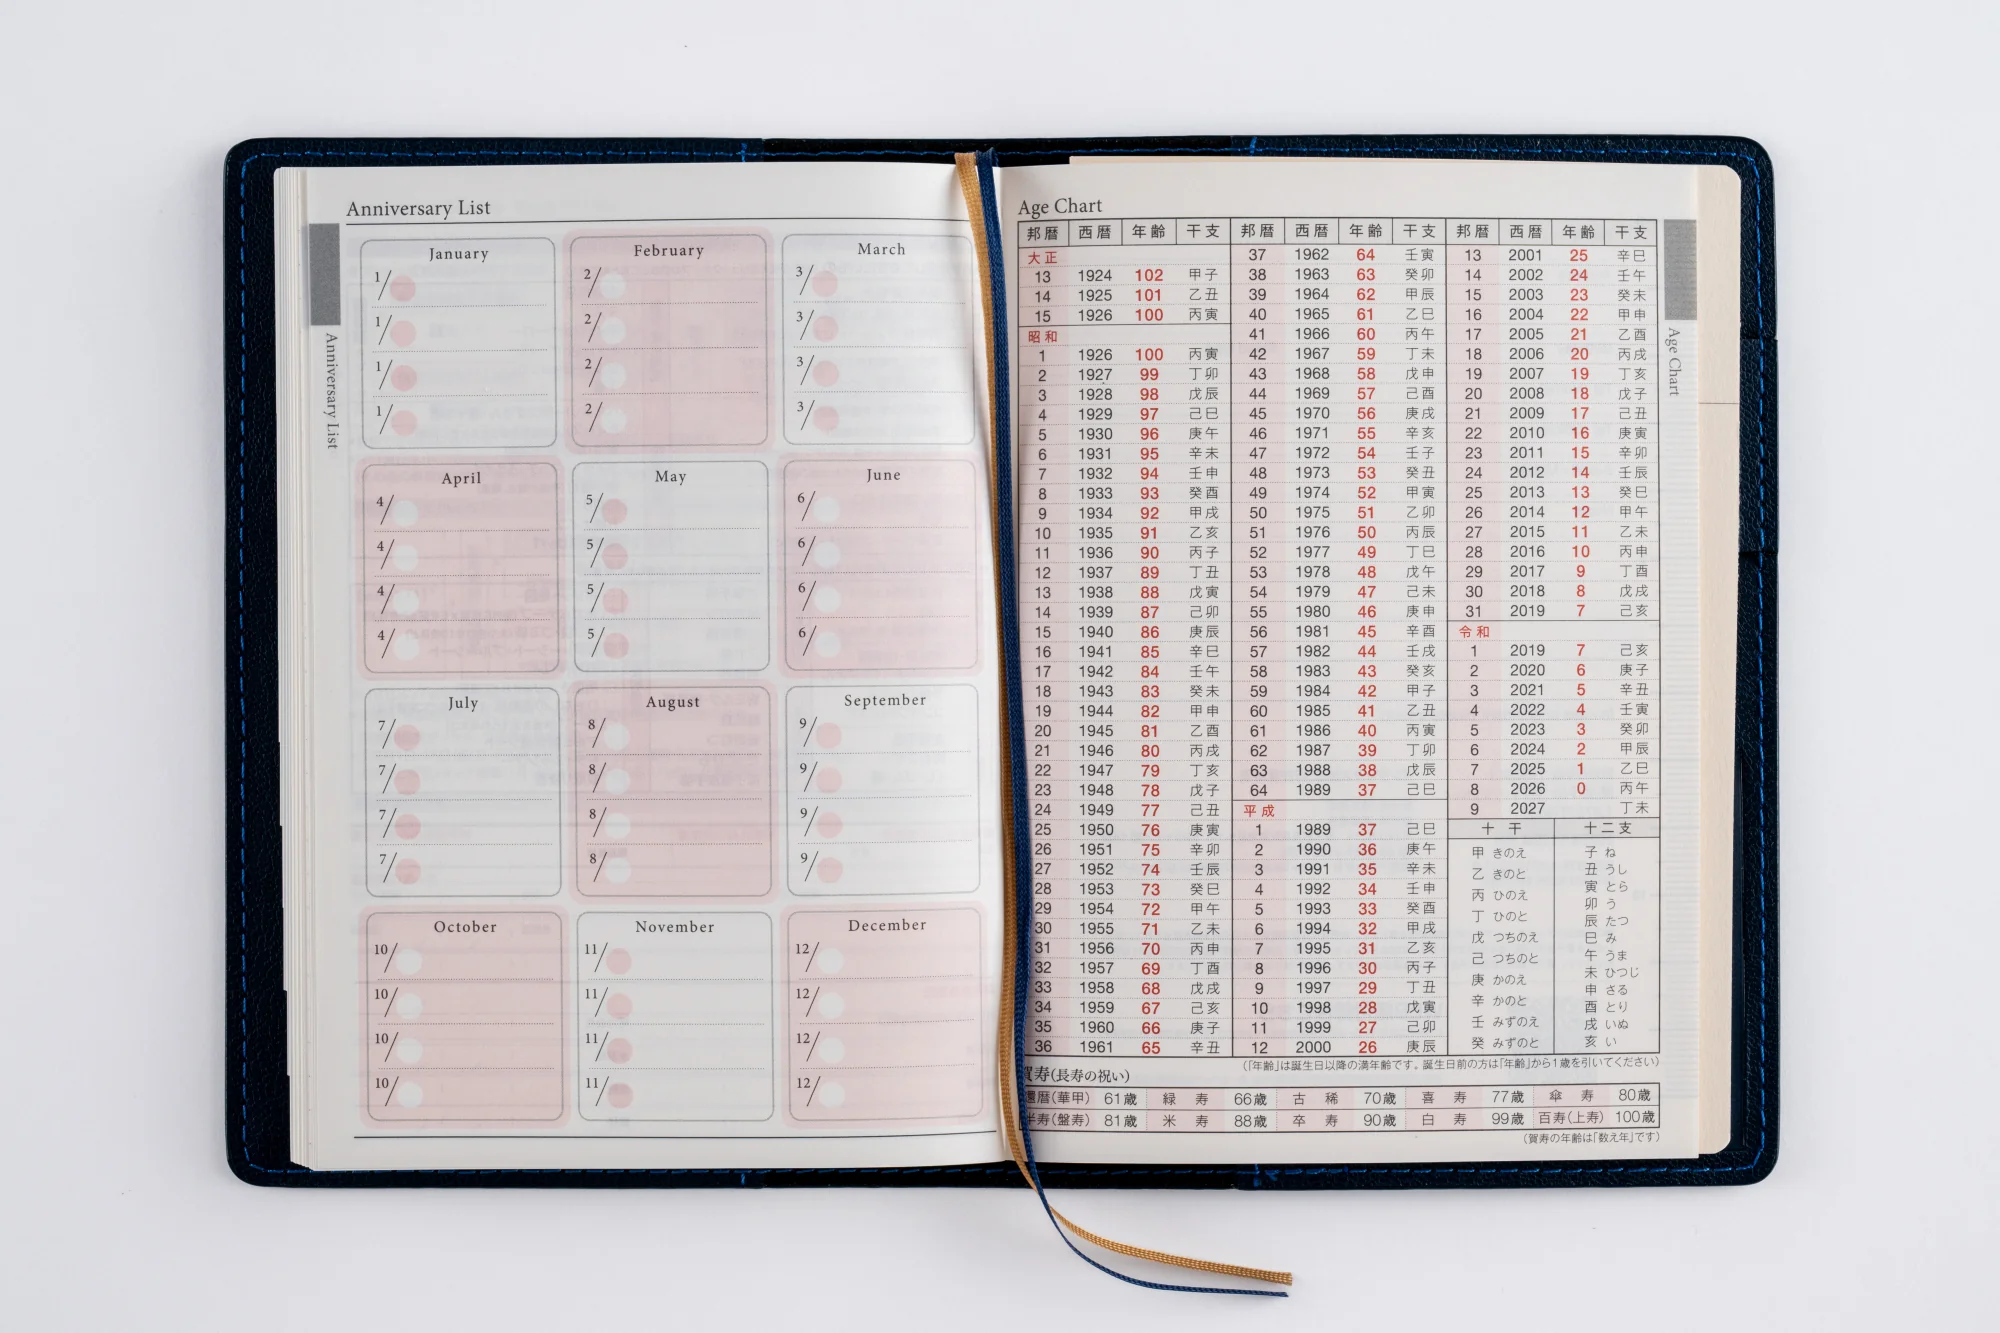 Anniversary List
January
1/
1/
1/
1/
February
2/
2/
2/
2/
March
3/
3/
3/
3/
April
4/
4/
4/
4/
May
5/
5/
5/
5/
June
6/
6/
6/
6/
July
7/
7/
7/
7/
August
8/
8/
8/
8/
September
9/
9/
9/
9/
October
10/
10/
10/
10/
November
11/
11/
11/
11/
December
12/
12/
12/
12/
Anniversary List
Age Chart
邦暦 西暦 年齢 干支
大正
13 1924 102 甲子
14 1925 101 乙丑
15 1926 100 丙寅
昭和
1 1926 100 丙寅
2 1927 99 丁卯
3 1928 98 戊辰
4 1929 97 己巳
5 1930 96 庚午
6 1931 95 辛未
7 1932 94 壬申
8 1933 93 癸酉
9 1934 92 甲戌
10 1935 91 乙亥
11 1936 90 丙子
12 1937 89 丁丑
13 1938 88 戊寅
14 1939 87 己卯
15 1940 86 庚辰
16 1941 85 辛巳
17 1942 84 壬午
18 1943 83 癸未
19 1944 82 甲申
20 1945 81 乙酉
21 1946 80 丙戌
22 1947 79 丁亥
23 1948 78 戊子
24 1949 77 己丑
25 1950 76 庚寅
26 1951 75 辛卯
27 1952 74 壬辰
28 1953 73 癸巳
29 1954 72 甲午
30 1955 71 乙未
31 1956 70 丙申
32 1957 69 丁酉
33 1958 68 戊戌
34 1959 67 己亥
35 1960 66 庚子
36 1961 65 辛丑
邦暦 西暦 年齢 干支
37 1962 64 壬寅
38 1963 63 癸卯
39 1964 62 甲辰
40 1965 61 乙巳
41 1966 60 丙午
42 1967 59 丁未
43 1968 58 戊申
44 1969 57 己酉
45 1970 56 庚戌
46 1971 55 辛亥
47 1972 54 壬子
48 1973 53 癸丑
49 1974 52 甲寅
50 1975 51 乙卯
51 1976 50 丙辰
52 1977 49 丁巳
53 1978 48 戊午
54 1979 47 己未
55 1980 46 庚申
56 1981 45 辛酉
57 1982 44 壬戌
58 1983 43 癸亥
59 1984 42 甲子
60 1985 41 乙丑
61 1986 40 丙寅
62 1987 39 丁卯
63 1988 38 戊辰
64 1989 37 己巳
平成
1 1989 37 己巳
2 1990 36 庚午
3 1991 35 辛未
4 1992 34 壬申
5 1993 33 癸酉
6 1994 32 甲戌
7 1995 31 乙亥
8 1996 30 丙子
9 1997 29 丁丑
10 1998 28 戊寅
11 1999 27 己卯
12 2000 26 庚辰
邦暦 西暦 年齢 干支
13 2001 25 辛巳
14 2002 24 壬午
15 2003 23 癸未
16 2004 22 甲申
17 2005 21 乙酉
18 2006 20 丙戌
19 2007 19 丁亥
20 2008 18 戊子
21 2009 17 己丑
22 2010 16 庚寅
23 2011 15 辛卯
24 2012 14 壬辰
25 2013 13 癸巳
26 2014 12 甲午
27 2015 11 乙未
28 2016 10 丙申
29 2017 9 丁酉
30 2018 8 戊戌
31 2019 7 己亥
令和
1 2019 7 己亥
2 2020 6 庚子
3 2021 5 辛丑
4 2022 4 壬寅
5 2023 3 癸卯
6 2024 2 甲辰
7 2025 1 乙巳
8 2026 0 丙午
9 2027 丁未
十干
甲 きのえ
乙 きのと
丙 ひのえ
丁 ひのと
戊 つちのえ
己 つちのと
庚 かのえ
辛 かのと
壬 みずのえ
癸 みずのと
十二支
子 ね
丑 うし
寅 とら
卯 う
辰 たつ
巳 み
午 うま
未 ひつじ
申 さる
酉 とり
戌 いぬ
亥 い
(「年齢」は誕生日以降の満年齢です。誕生日前の方は「年齢」から1歳を引いてください)
賀寿(長寿の祝い)
還暦(華甲) 61歳 緑寿 66歳 古稀 70歳 喜寿 77歳 傘寿 80歳
半寿(盤寿) 81歳 米寿 88歳 卒寿 90歳 白寿 99歳 百寿(上寿) 100歳
(賀寿の年齢は「数え年」です)
Age Chart